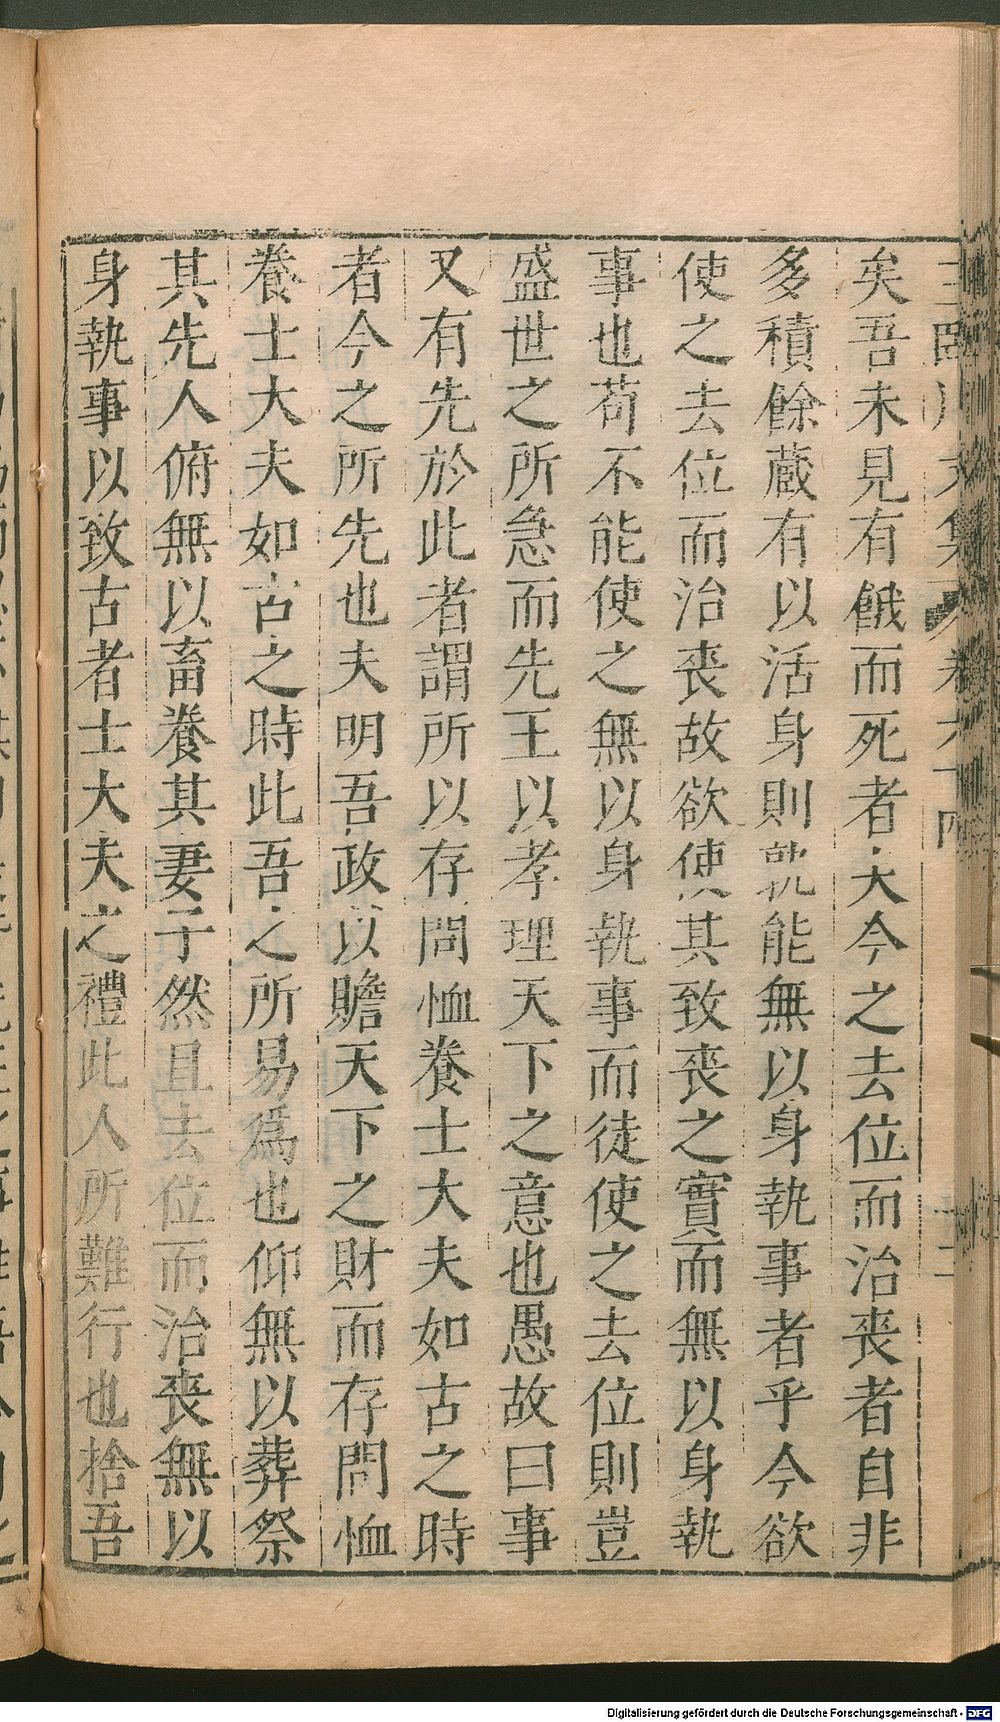 矣吾未見有餓而死者夫今之去位而治喪者自非
多積餘蔵有以活身則孰能無以身執事者乎今欲
使之去位而治喪故欲使其致喪之實而無以身執
事也苟不能使之無以身執事而徒使之去位則豈
盛世之所急而先王以孝理天下之意也愚故曰事
又有先於此者謂所以存問恤養士大夫如古之時
者今之所先也夫明吾政以贍天下之財而存問恤
養士大夫如古之時此吾之所易爲也仰無以葬祭
其先人俯無以畜養其妻子然且去位而治喪無以
身執事以致古者士大夫之禮此人所難行也捨吾
Digitalisierung gefördert durch die Deutsche Forschungsgemeinschaft - DFG